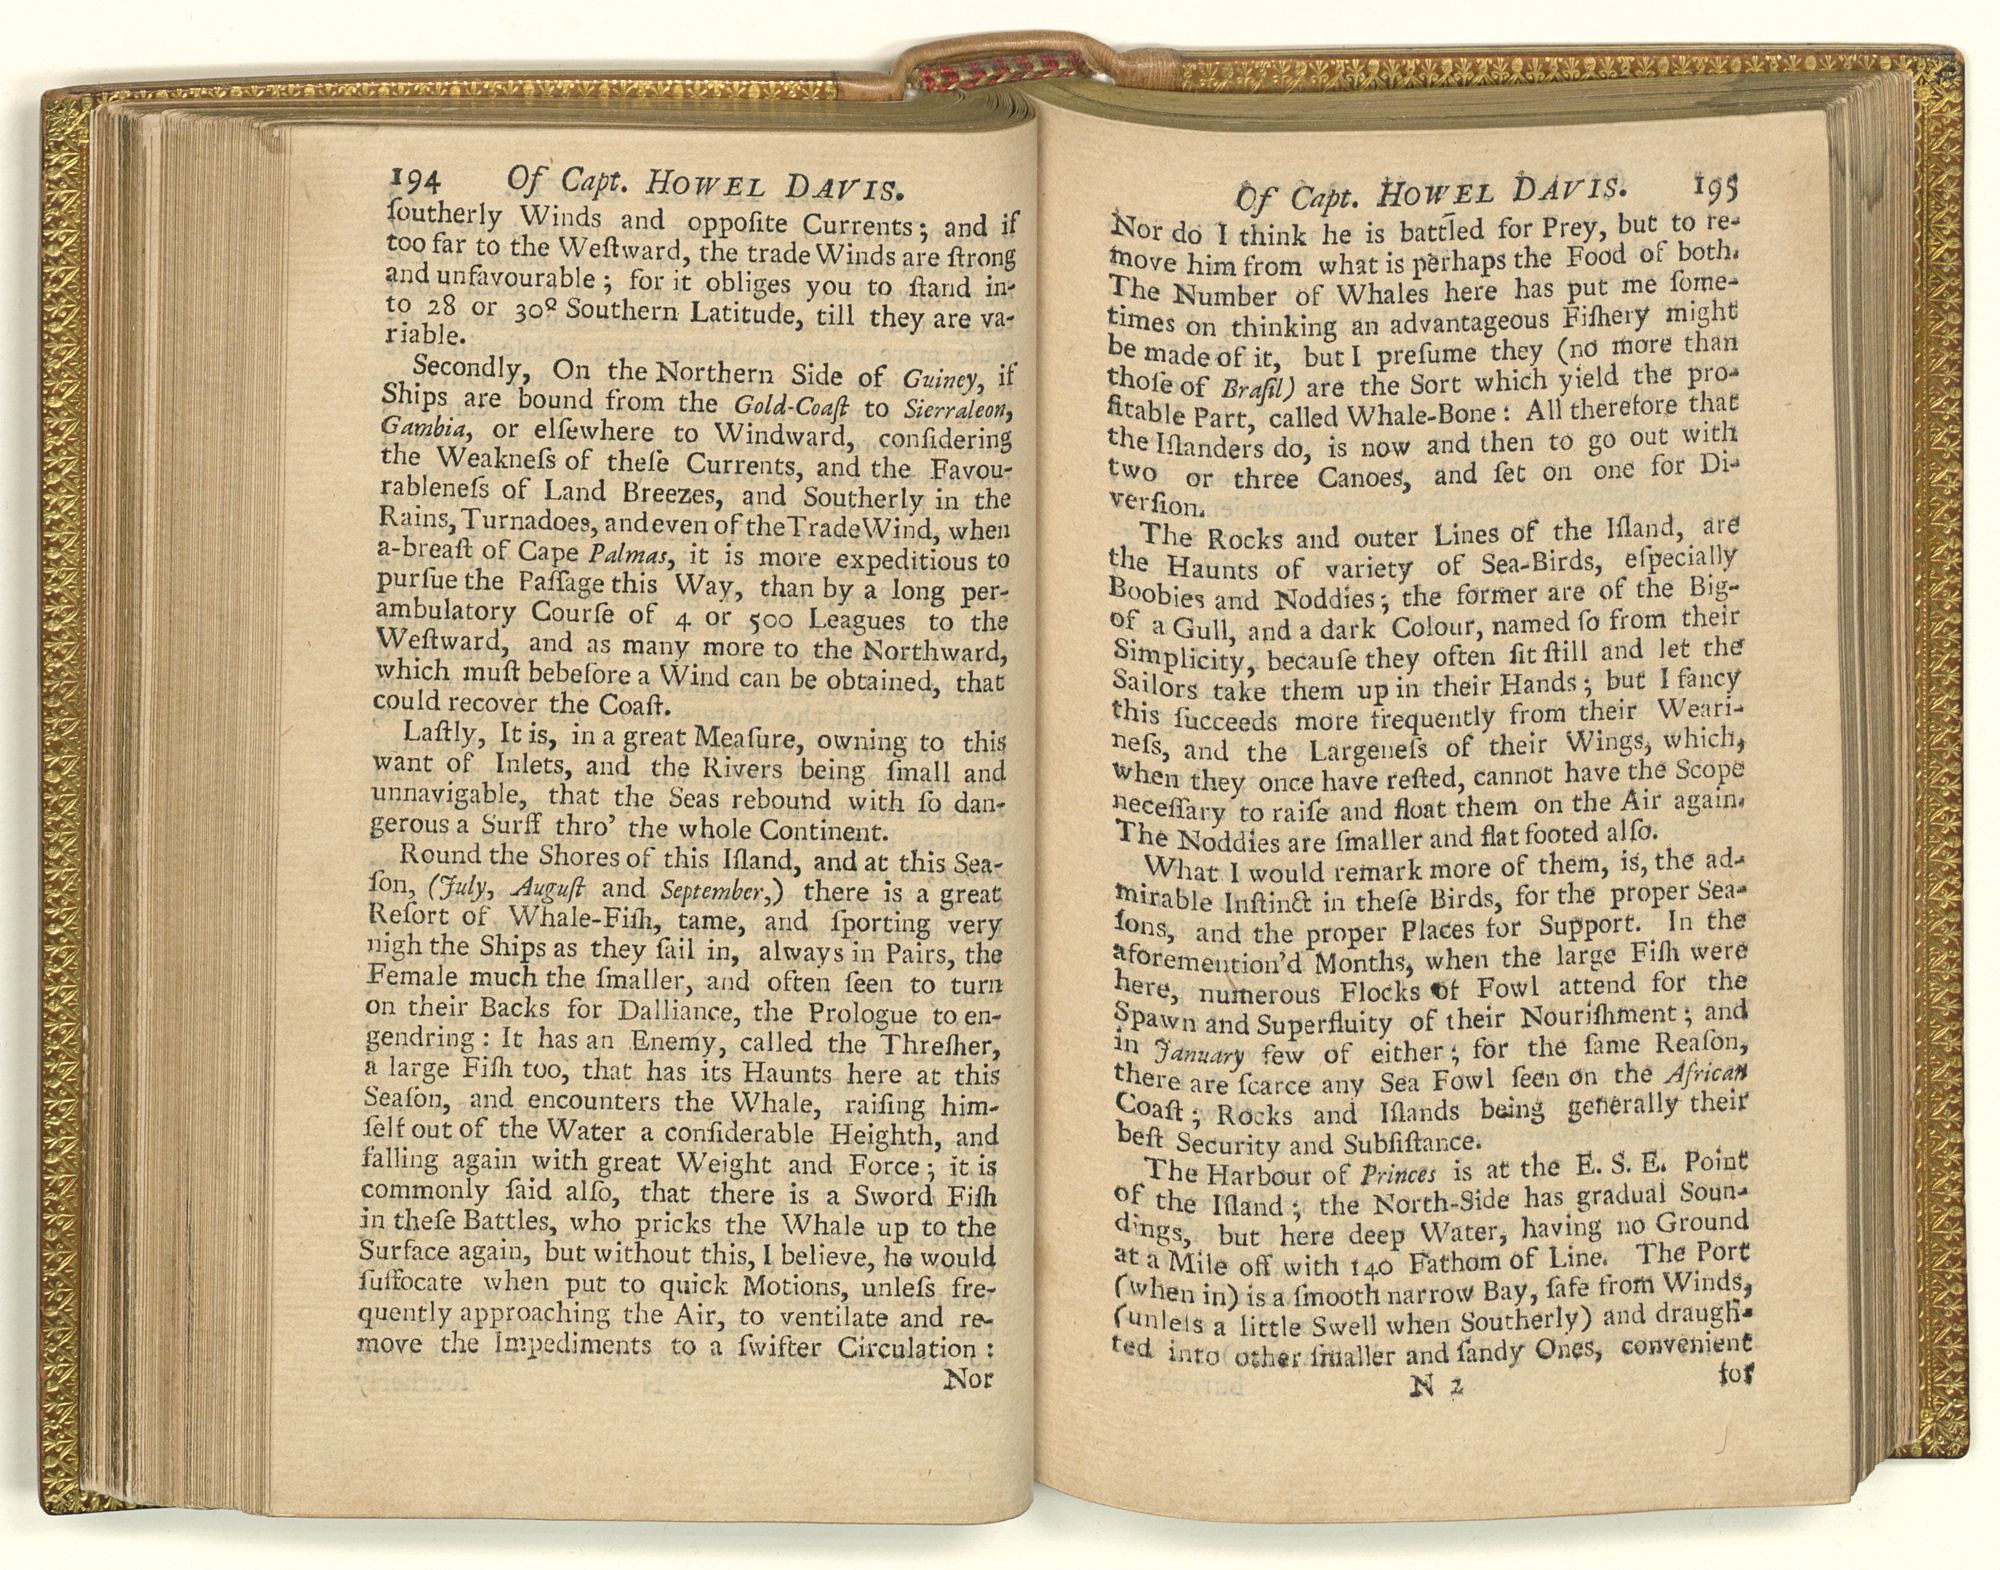 194 Of Capt. HOWEL DAVIS.
ſoutherly Winds and oppoſite Currents; and if
too far to the Weſtward, the trade Winds are ſtrong
and unfavourable; for it obliges you to ſtand in-
to 28 or 30° Southern Latitude, till they are va-
riable.
Secondly, On the Northern Side of Guiney, if
Ships are bound from the Gold-Coaſt to Sierraleon,
Gambia, or elſewhere to Windward, conſidering
the Weakneſs of theſe Currents, and the Favou-
rableneſs of Land Breezes, and Southerly in the
Rains, Turnadoes, and even of the Trade Wind, when
a-breaſt of Cape Palmas, it is more expeditious to
purſue the Paſſage this Way, than by a long per-
ambulatory Courſe of 4 or 500 Leagues to the
Weſtward, and as many more to the Northward,
which muſt bebefore a Wind can be obtained, that
could recover the Coaſt.
Laſtly, It is, in a great Meaſure, owning to this
want of Inlets, and the Rivers being ſmall and
unnavigable, that the Seas rebound with ſo dan-
gerous a Surff thro' the whole Continent.
Round the Shores of this Iſland, and at this Sea-
ſon, (July, Auguſt and September,) there is a great
Reſort of Whale-Fiſh, tame, and ſporting very
nigh the Ships as they ſail in, always in Pairs, the
Female much the ſmaller, and often ſeen to turn
on their Backs for Dalliance, the Prologue to en-
gendring: It has an Enemy, called the Threſher,
a large Fiſh too, that has its Haunts here at this
Seaſon, and encounters the Whale, raiſing him-
ſelf out of the Water a conſiderable Heighth, and
falling again with great Weight and Force; it is
commonly ſaid alſo, that there is a Sword Fiſh
in theſe Battles, who pricks the Whale up to the
Surface again, but without this, I believe, he would
ſuffocate when put to quick Motions, unleſs fre-
quently approaching the Air, to ventilate and re-
move the Impediments to a ſwifter Circulation:
Nor
Of Capt. HOWEL DAVIS. 195
Nor do I think he is battled for Prey, but to re-
move him from what is perhaps the Food of both.
The Number of Whales here has put me ſome-
times on thinking an advantageous Fiſhery might
be made of it, but I preſume they (no more than
thoſe of Braſil) are the Sort which yield the pro-
fitable Part, called Whale-Bone: All therefore that
the Iſlanders do, is now and then to go out with
two or three Canoes, and ſet on one for Di-
verſion.
The Rocks and outer Lines of the Iſland, are
the Haunts of variety of Sea-Birds, eſpecially
Boobies and Noddies; the former are of the Big-
of a Gull, and a dark Colour, named ſo from their
Simplicity, becauſe they often ſit ſtill and let the
Sailors take them up in their Hands; but I fancy
this ſucceeds more frequently from their Weari-
neſs, and the Largeneſs of their Wings, which,
when they once have reſted, cannot have the Scope
neceſſary to raiſe and float them on the Air again.
The Noddies are ſmaller and flat footed alſo.
What I would remark more of them, is, the ad-
mirable Inſtinct in theſe Birds, for the proper Sea-
ſons, and the proper Places for Support. In the
aforemention'd Months, when the large Fiſh were
here, numerous Flocks of Fowl attend for the
Spawn and Superfluity of their Nouriſhment; and
in January few of either; for the ſame Reaſon,
there are ſcarce any Sea Fowl ſeen on the African
Coaſt; Rocks and Iſlands being generally their
beſt Security and Subſiſtance.
The Harbour of Princes is at the E. S. E. Point
of the Iſland; the North-Side has gradual Soun-
dings, but here deep Water, having no Ground
at a Mile off with 140 Fathom of Line. The Port
(when in) is a ſmooth narrow Bay, ſafe from Winds,
(unleſs a little Swell when Southerly) and draugh-
ted into other ſmaller and ſandy Ones, convenient
N 2 for